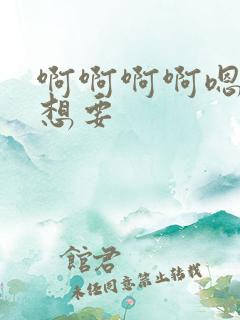 啊啊啊啊嗯
想要
館君
未经同意禁止转载